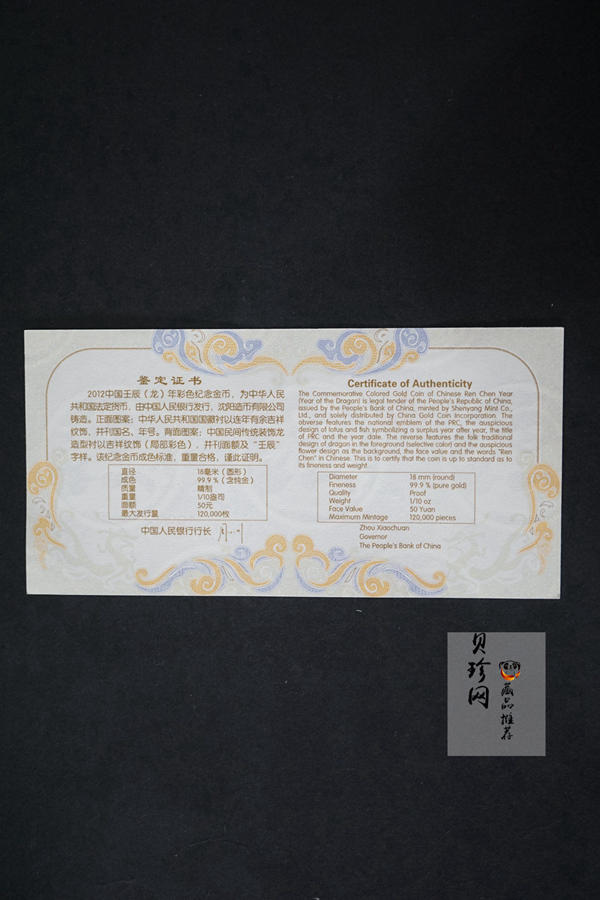 鉴定证书
2012中国壬辰（龙）年彩色纪念金币，为中华人民
共和国法定货币，由中国人民银行发行，沈阳造币有限公司
铸造。正面图案：中华人民共和国国徽衬以连年有余吉祥
纹饰，并刊国名、年号。背面图案：中国民间传统装饰龙
造型衬以吉祥纹饰（局部彩色），并刊面额及“壬辰”
字样。该纪念金币成色标准，重量合格，谨此证明。
直径 18毫米（圆形）
成色 99.9 %（含纯金）
质量 精制
重量 1/10盎司
面额 50元
最大发行量 120,000枚
中国人民银行行长
Certificate of Authenticity
The Commemorative Colored Gold Coin of Chinese Ren Chen Year
(Year of the Dragon) is legal tender of the People's Republic of China,
issued by the People's Bank of China, minted by Shenyang Mint Co.,
Ltd., and solely distributed by China Gold Coin Incorporation. The
obverse features the national emblem of the PRC, the auspicious
design of lotus and fish symbolizing a surplus year after year, the title
of PRC and the year date. The reverse features the folk traditional
design of dragon in the foreground (selective color) and the auspicious
flower design as the background, the face value and the words "Ren
Chen" in Chinese. This is to certify that the coin is up to standard as to
its fineness and weight.
Diameter 18 mm (round)
Fineness 99.9 % (pure gold)
Quality Proof
Weight 1/10 oz
Face Value 50 Yuan
Maximum Mintage 120,000 pieces
Zhou Xiaochuan
Governor
The People's Bank of China
贝珍网
藏品推荐